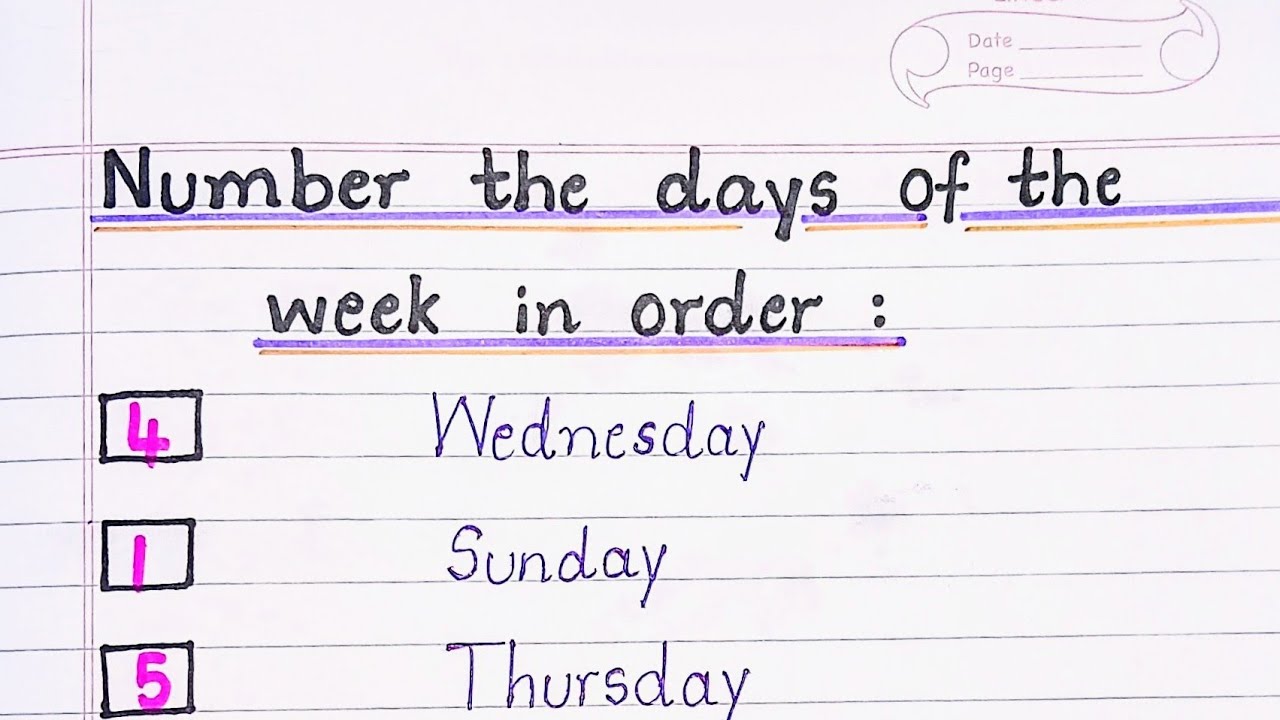 Date
Page
Number the days of the
week in order :
4 Wednesday
1 Sunday
5 Thursday